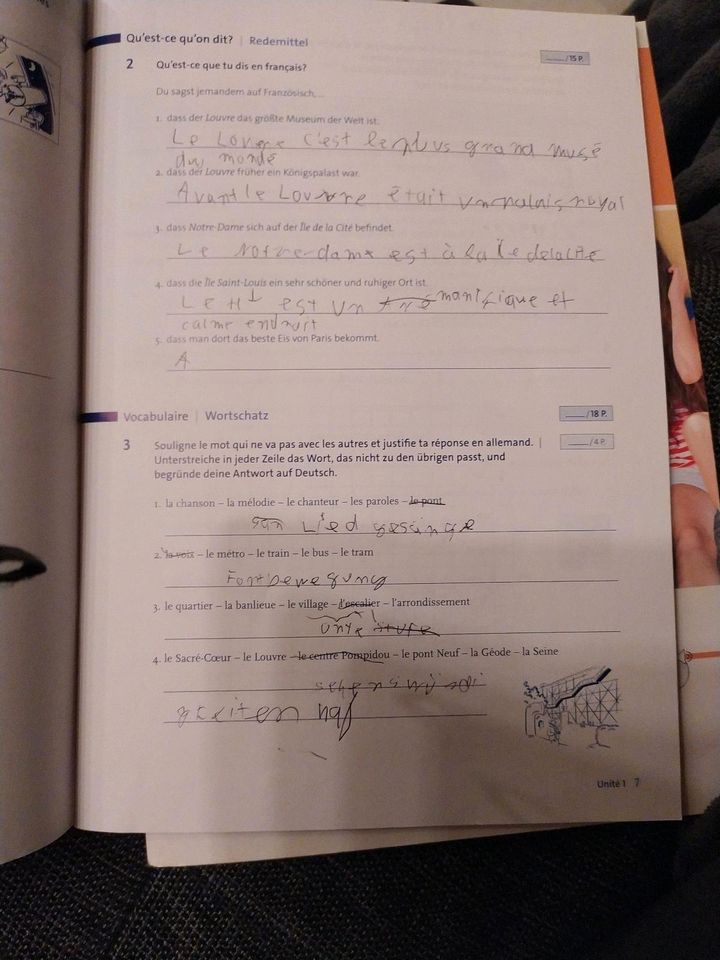 Qu'est-ce qu'on dit? | Redemittel
2 Qu'est-ce que tu dis en français?
/15 P.
Du sagst jemandem auf Französisch, ...
1. dass der Louvre das größte Museum der Welt ist.
Le Louvre c'est le plus grand musé
du monde
2. dass der Louvre früher ein Königspalast war.
Avant le Louvre était un palais royal
3. dass Notre-Dame sich auf der Île de la Cité befindet.
Le Notre-dame est à la Île de la Cité
4. dass die Île Saint-Louis ein sehr schöner und ruhiger Ort ist.
est un manifique et
calme endroit
5. dass man dort das beste Eis von Paris bekommt.
A
Vocabulaire | Wortschatz
/18 P.
3 Souligne le mot qui ne va pas avec les autres et justifie ta réponse en allemand. |
/4 P.
Unterstreiche in jeder Zeile das Wort, das nicht zu den übrigen passt, und
begründe deine Antwort auf Deutsch.
1. la chanson – la mélodie – le chanteur – les paroles – le pont
Lied gesänge
2. la voix – le métro – le train – le bus – le tram
Fortbewegung
3. le quartier – la banlieue – le village – l'escalier – l'arrondissement
4. le Sacré-Cœur – le Louvre – le centre Pompidou – le pont Neuf – la Géode – la Seine
Unité 1 7